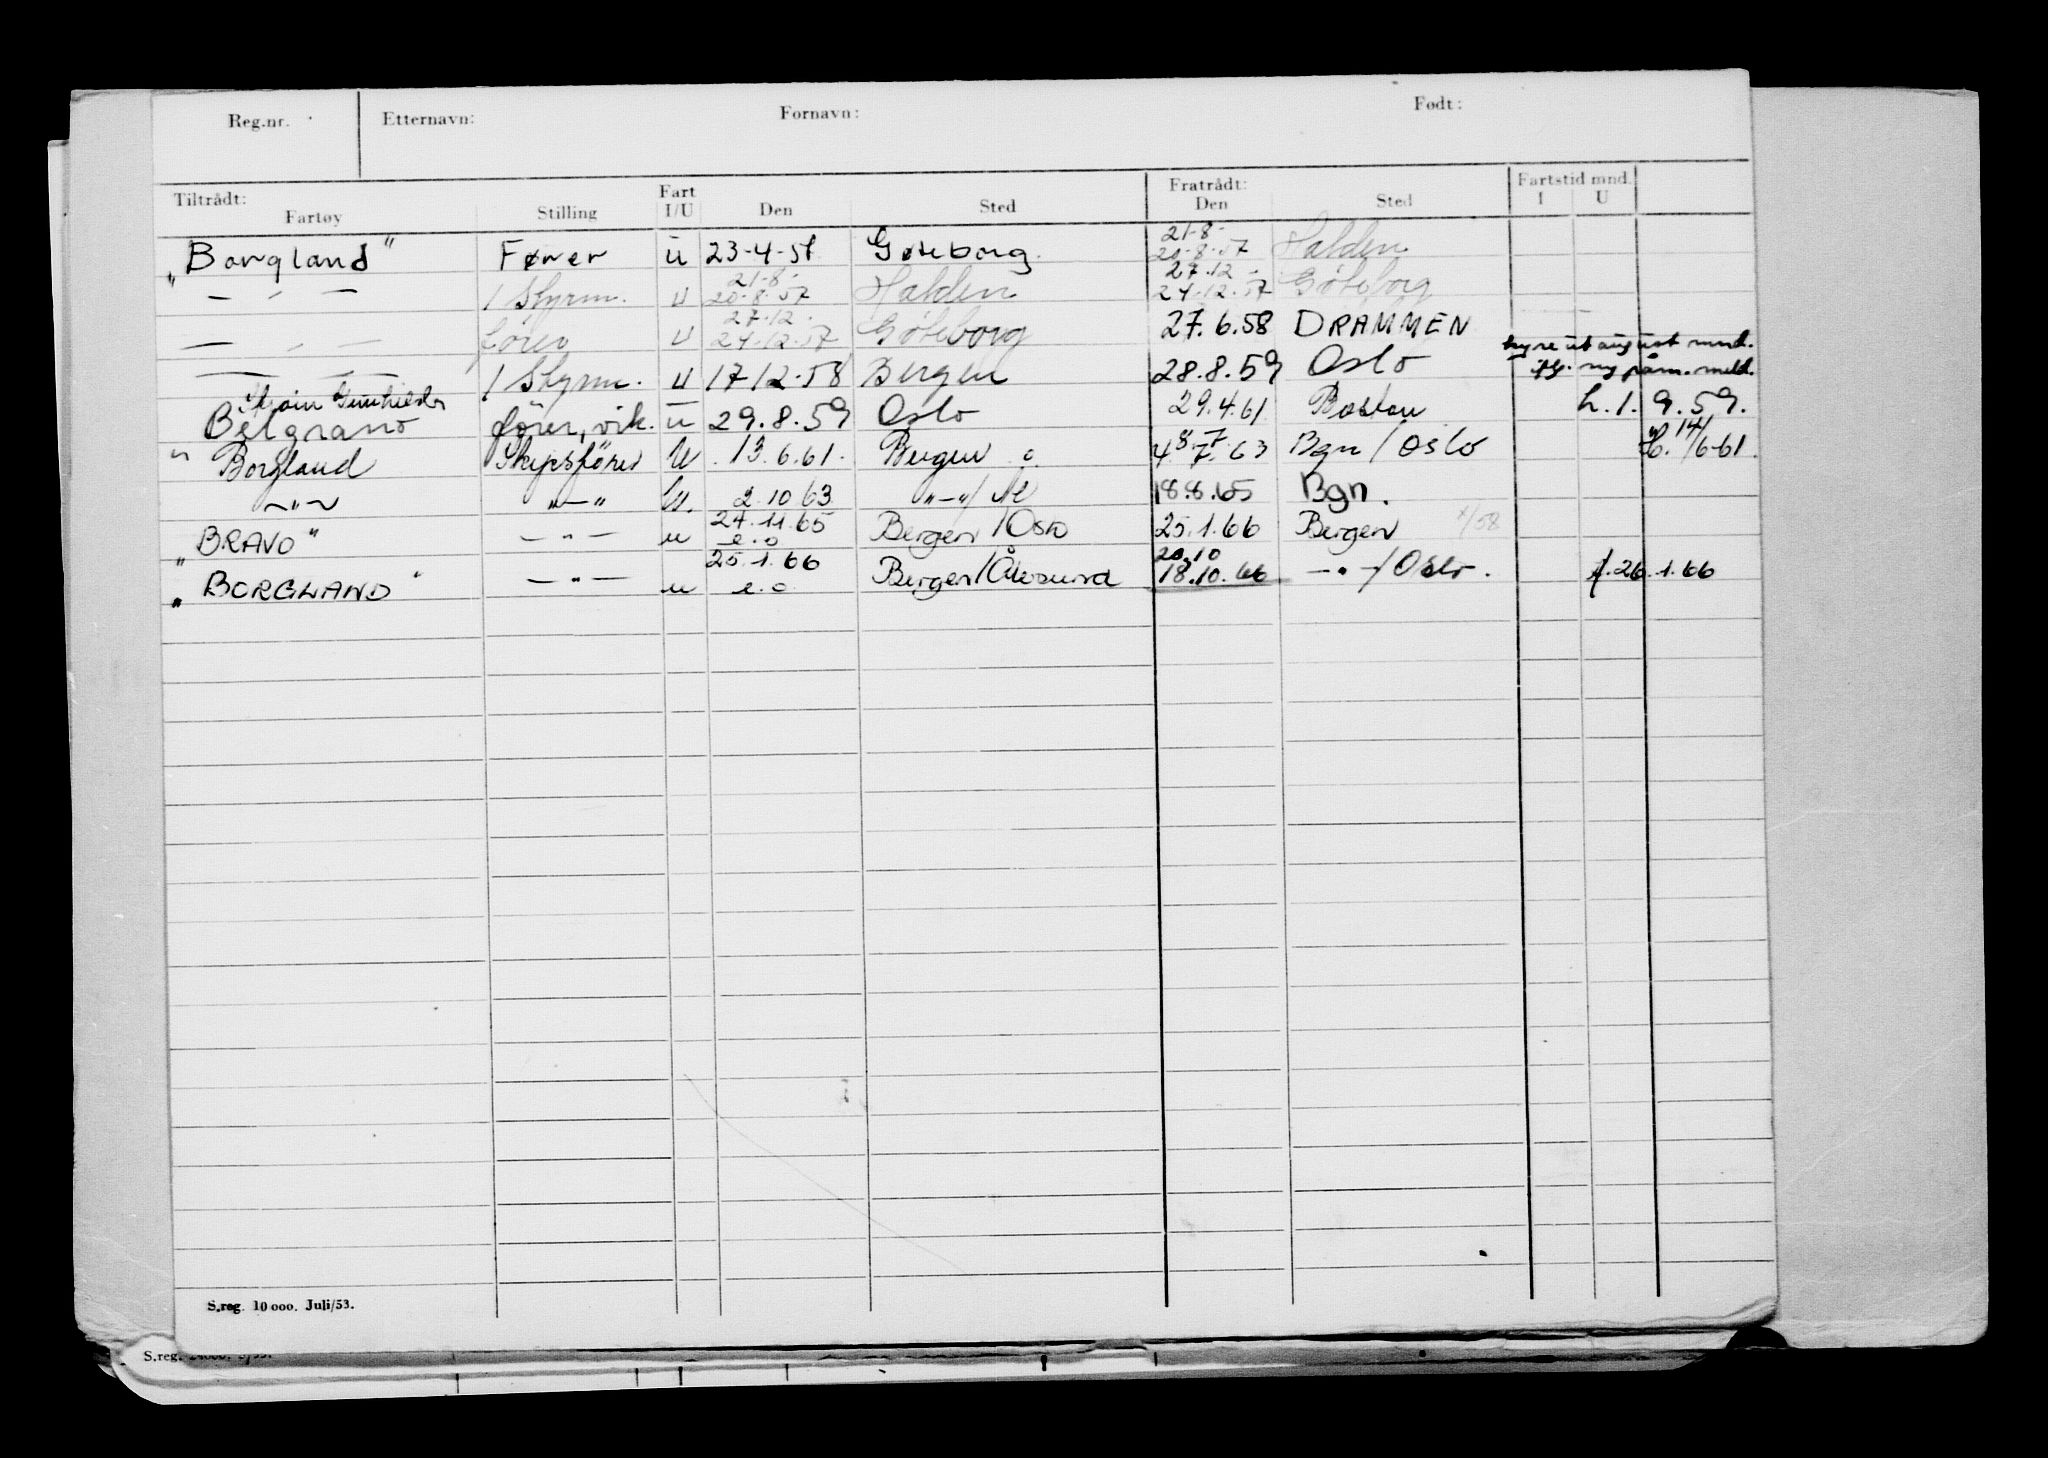 Reg.nr. Etternavn: Fornavn: Født:
Tiltrådt: Fart Fratrådt: Fartstid mnd.
Fartøy Stilling I/U Den Sted Den Sted I U
21-8-
"Borgland" Fører u 23-4-57 Gøteborg. 20-8-57 Halden
21-8- 27.12-
— " — 1 Styrm. u 20-8-57 Halden 24-12-57 Göteborg
27-12-
— " — fører u 24-12-57 Göteborg 27.6.58 DRAMMEN
hyre ut august mnd.
— — — 1 Styrm. u 17 12-58 Bergen 28.8.59 Oslo ny påm. meld.
Belgrano fører, vik. u 29.8.59 Oslo 29.4.61 Boston h. 1. 9.59.
8.7. 14/
" Borgland Skipsfører U. 13.6.61. Bergen 4.7.63 Bgn/Oslo 6-61.
—"— "—" U. 2.10 63 "—"/ 18.8.65 Bgn.
24.11.65
"BRAVO" — " — u e.o Bergen/Oslo 25.1.66 Bergen /58
25.1.66 20.10
"BORGLAND" — " — u e.o Bergen/Ålesund 18.10.66 —"—/Oslo. 26.1.66
S.reg. 10 000. Juli/53.
S.reg.